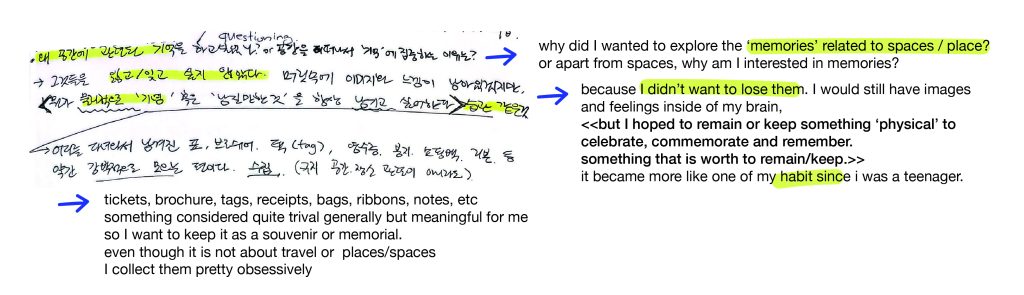 questioning
왜 공간에 관련된 '기억'을 하고싶었나? or 공간을 떠나서 '기억'에 집중하는 이유는?
→ 그것들을 잃고/잊고 싶지 않았다. 머릿속에 이미지와 느낌이 남아있겠지만,
'기념' 혹은 '남길만한 것'을 항상 남기고 싶어한다 습관 같은
다녀와서 남겨진 표, 브로셔, 택(tag), 영수증, 봉지, 쇼핑백, 리본 등
약간 강박적으로 모으는 편이다. 수집 (굳이 공간·장소 관련이 아니라도)
why did I wanted to explore the ‘memories’ related to spaces / place?
or apart from spaces, why am I interested in memories?
because I didn’t want to lose them. I would still have images
and feelings inside of my brain,
<<but I hoped to remain or keep something ‘physical’ to
celebrate, commemorate and remember.
something that is worth to remain/keep.>>
it became more like one of my habit since i was a teenager.
tickets, brochure, tags, receipts, bags, ribbons, notes, etc
something considered quite trival generally but meaningful for me
so I want to keep it as a souvenir or memorial.
even though it is not about travel or places/spaces
I collect them pretty obsessively